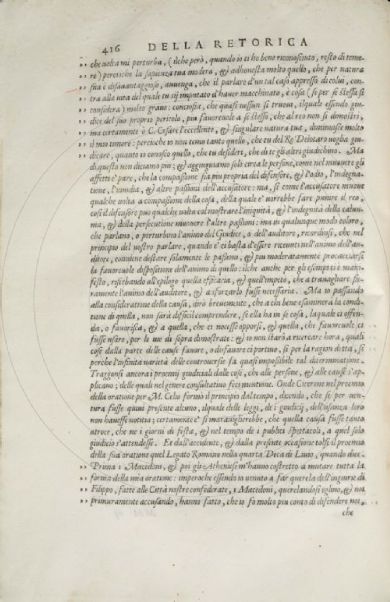 416 DELLA RETORICA
,, che molta mi perturba, (ilche però, quando io ti ho bene riconosciuto, resto di teme-
,, re) percioche la sapienza tua modera, & adhonesta molto quello, che per natura
,, sua è disauantaggioso, auuenga, che il parlare d'un tal caso appresso di colui, con-
,, tra alla uita del quale tu sij imputato d'hauer macchinato, è cosa (se per se stessa si
,, considera) molto graue: conciosia, che quasi nessun si truoua, ilquale essendo giu-
,, dice del suo proprio pericolo, più fauoreuole à se stesso, che al reo non si dimostri,
,, ma certamente ò C. Cesare l'eccellente, & singulare natura tua, diminuisce molto
,, il mio timore: percioche io non temo tanto quello, che tu del Re Deiotaro uoglia giu-
,, dicare, quanto io conosco quello, che tu desideri, che di te gli altri giudichino. Ma
di questo non diciamo più; & aggiungiamo sol circa le persone, come nel muouere gli
affetti è pare, che la compassione sia più propria del difensore, & l'odio, l'indegna-
tione, l'inuidia, & altre passioni dell'accusatore: ma, si come l'accusatore muoue
qualche uolta à compassione della cosa, della quale è uorrebbe fare punire il reo,
così il difensore può qualche uolta col mostrare l'iniquità, & l'indegnità della calun-
nia, & della persecutione muouere l'altre passioni: ma in qualunque modo coloro,
che parlano, ò perturbino l'animo del Giudice, ò dell'auditore, ricordisi, che nel
principio del nostro parlare, quando e' ci basta d'essere riceuuti nell'animo dell'au-
ditore, conuiene destare solamente le passioni, & più moderatamente procacciarsi
la fauoreuole dispositione dell'animo di quello: ilche anche per gli esempi è mani-
festo, riserbando all'epilogo quella efficacia, & quell'impeto, che à trauagliare fie-
ramente l'animo dell'auditore, & à sforzarlo fusse necessaria. Ma io passando
alla consideratione della causa, dirò breuemente, che à chi bene esaminerà la condi-
tione di quella, non sarà difficil comprendere, se ella ha in se cosa, laquale ci offen-
da, ò fauorisca, & à quella, che ci nocesse opporsi, & quella, che fauoreuole ci
fusse usare, per le uie di sopra dimostrate: & io non starò à ricercare hora, quali
cose dalla parte delle cause fauore, ò disfauore ci portino, sì per la ragion detta, sì
perche l'infinita uarietà delle controuersie fà quasi impossibile tal determinatione.
Traggonsi ancora i proemij giudiciali dalle cose, che alle persone, & alle cause s'ap-
plicano; delle quali nel genere consultatiuo feci mentione. Onde Cicerone nel proemio
della oratione per M. Celio formò il principio dal tempo, dicendo, che se per auen-
tura fusse quiui presente alcuno, ilquale delle leggi, de i giudicij, dell'usanza loro
non hauesse notitia; certamente e' si marauiglierebbe, che quella causa fusse tanto
atroce, che ne i giorni di festa, & nel tempo de i publici spettacoli, à quel solo
giudicio s'attendesse. Et dall'accidente, & dalla presente occasione tolse il proemio
della sua oratione quel Legato Romano nella quarta Deca di Liuio, quando disse
,, Prima i Macedoni, & poi gli Atheniesi m'hanno costretto à mutare tutta la
,, forma della mia oratione: imperoche essendo io uenuto à far querela dell'ingiurie di
,, Filippo, fatte alle Città nostre confederate, i Macedoni, querelandosi eglino, & noi
,, primieramente accusando, hanno fatto, che io fo molto più conto di difendere noi,
che